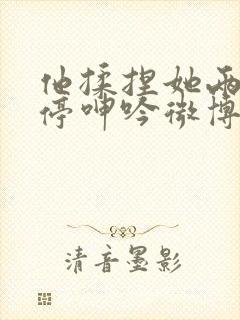 他揉捏她两
停呻吟微博
清音墨影